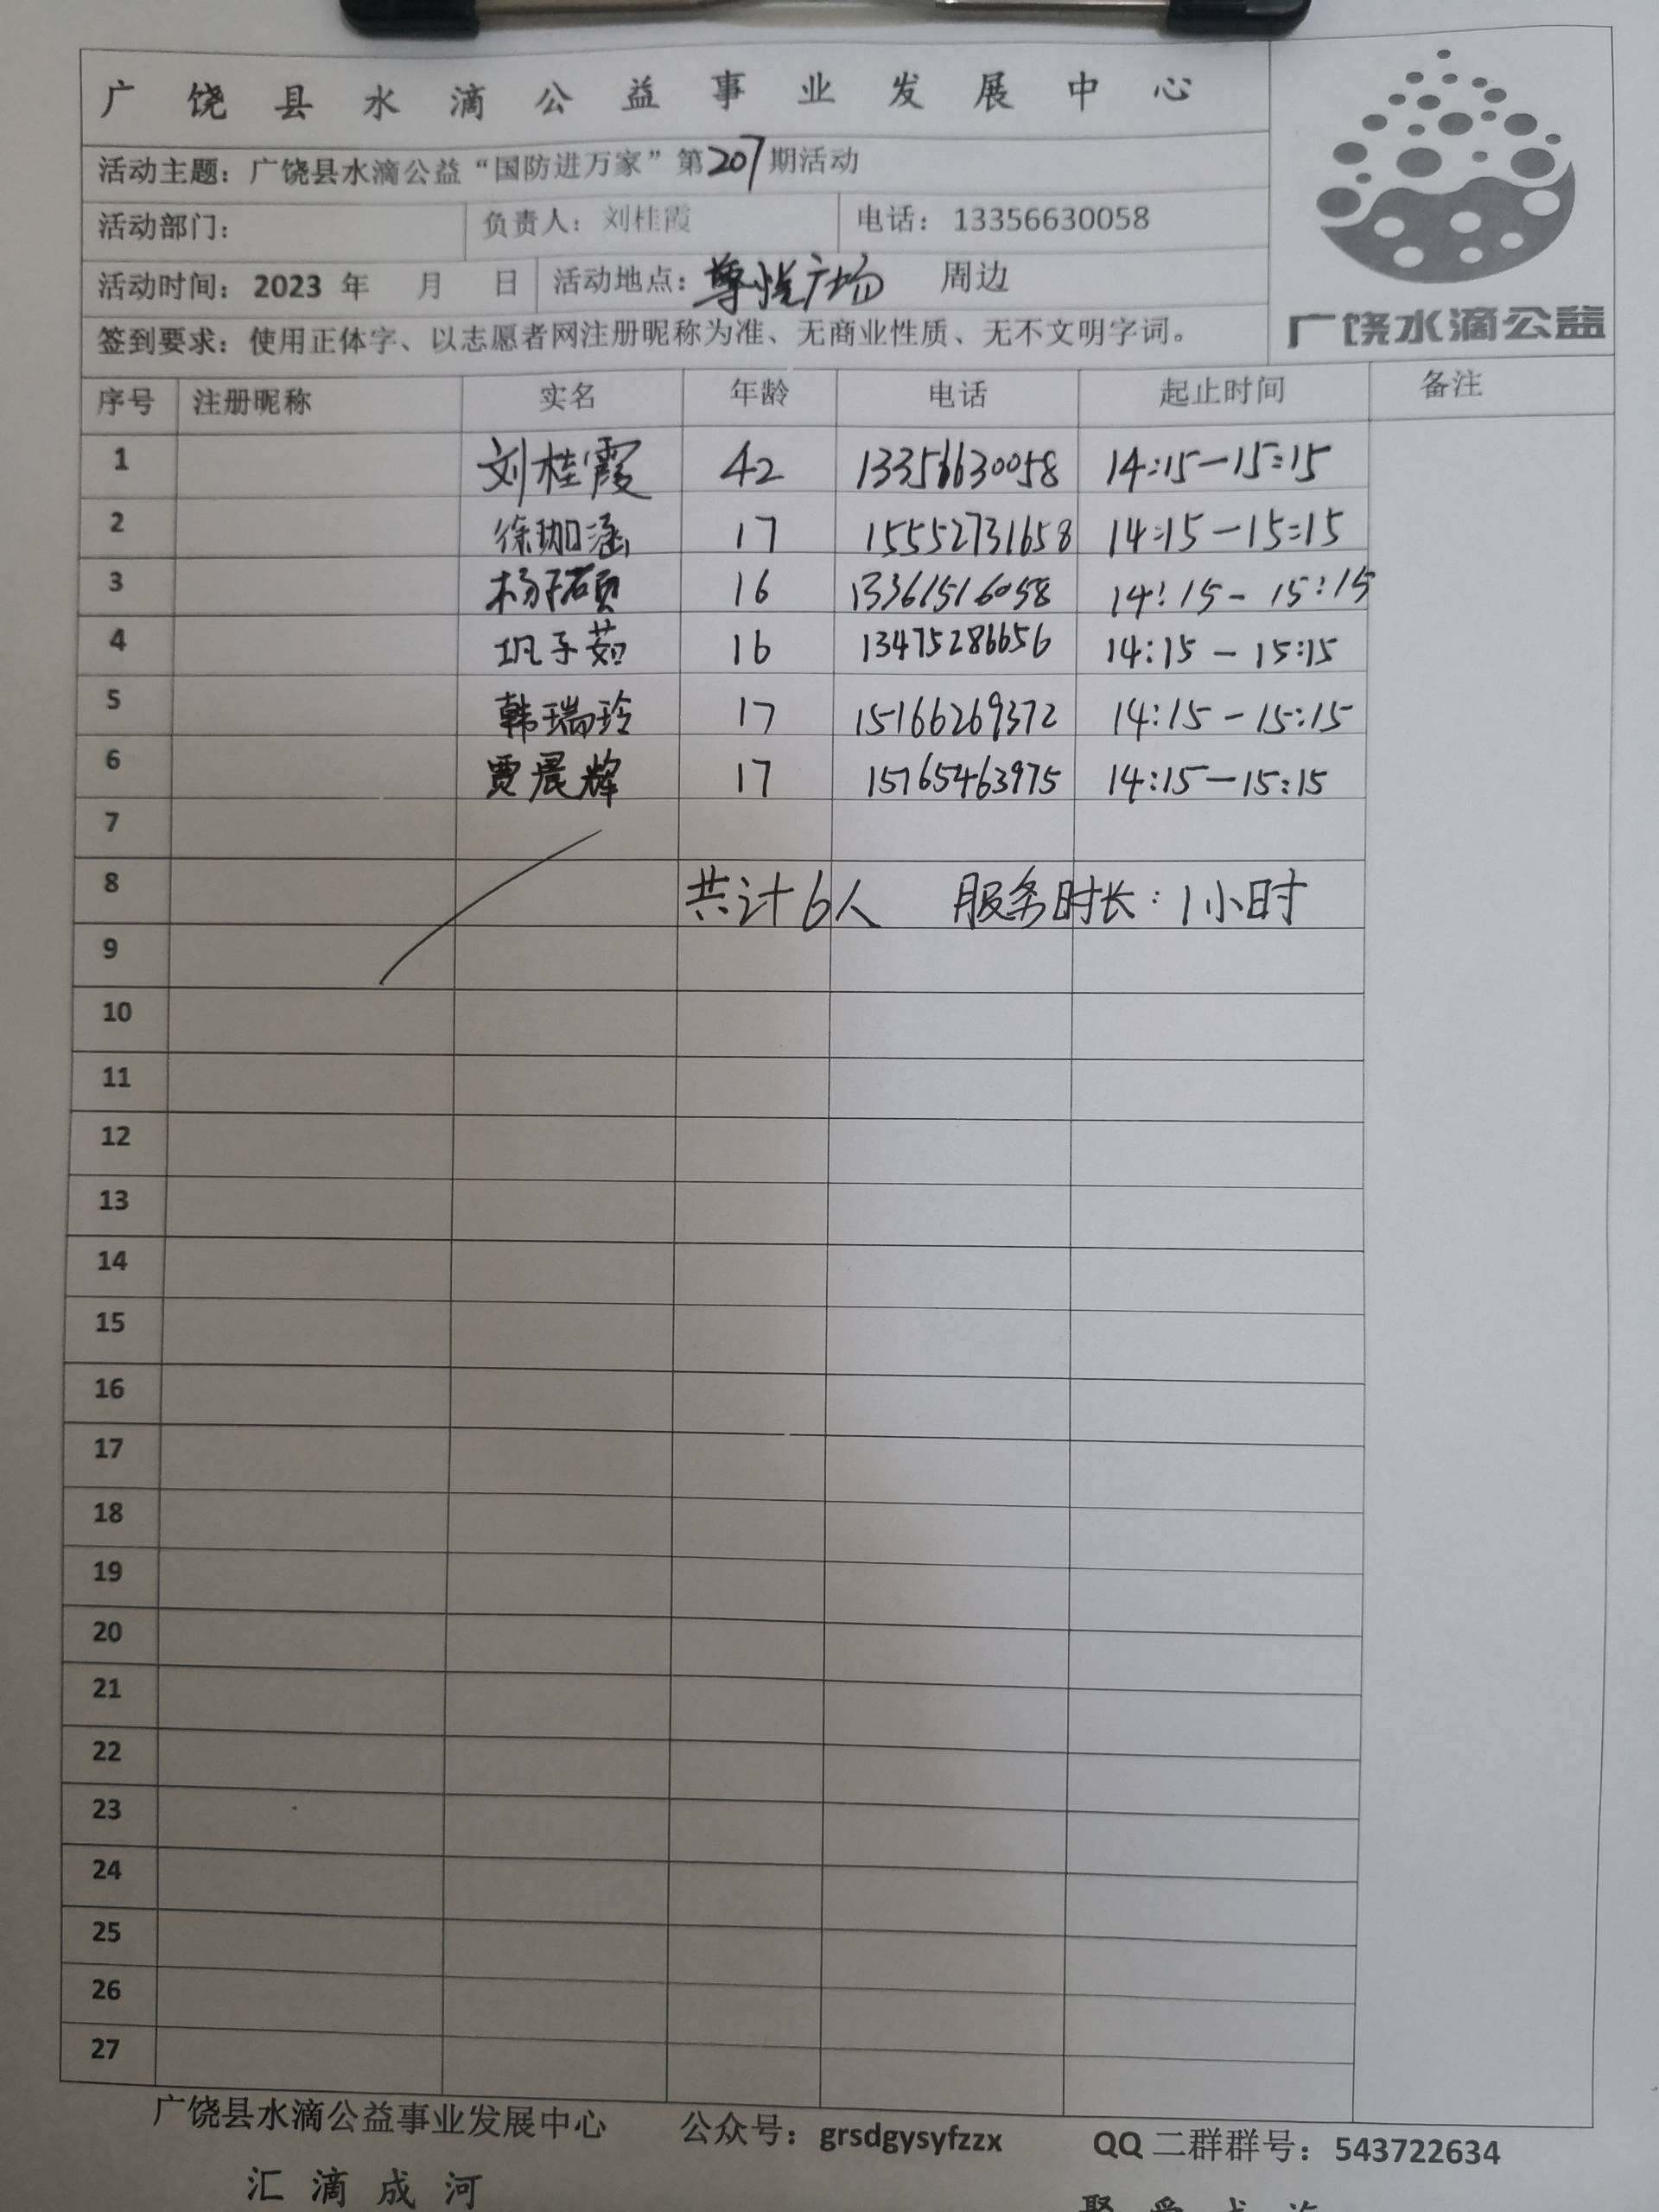 广饶县水滴公益事业发展中心
活动主题：广饶县水滴公益“国防进万家”第207期活动
活动部门： 负责人：刘桂霞 电话：13356630058
活动时间：2023 年 月 日 活动地点：尊悦广场 周边
签到要求：使用正体字、以志愿者网注册昵称为准、无商业性质、无不文明字词。
广饶水滴公益
序号 注册昵称 实名 年龄 电话 起止时间 备注
1 刘桂霞 42 13356630058 14:15-15:15
2 徐珈涵 17 15552731658 14:15-15:15
3 杨硕 16 13361516058 14:15-15:15
4 巩子茹 16 13475286656 14:15-15:15
5 韩瑞玲 17 15166269372 14:15-15:15
6 贾晨辉 17 15765463975 14:15-15:15
7
8 共计6人 服务时长：1小时
9
10
11
12
13
14
15
16
17
18
19
20
21
22
23
24
25
26
27
广饶县水滴公益事业发展中心 公众号：grsdgysyfzzx QQ 二群群号：543722634
汇滴成河